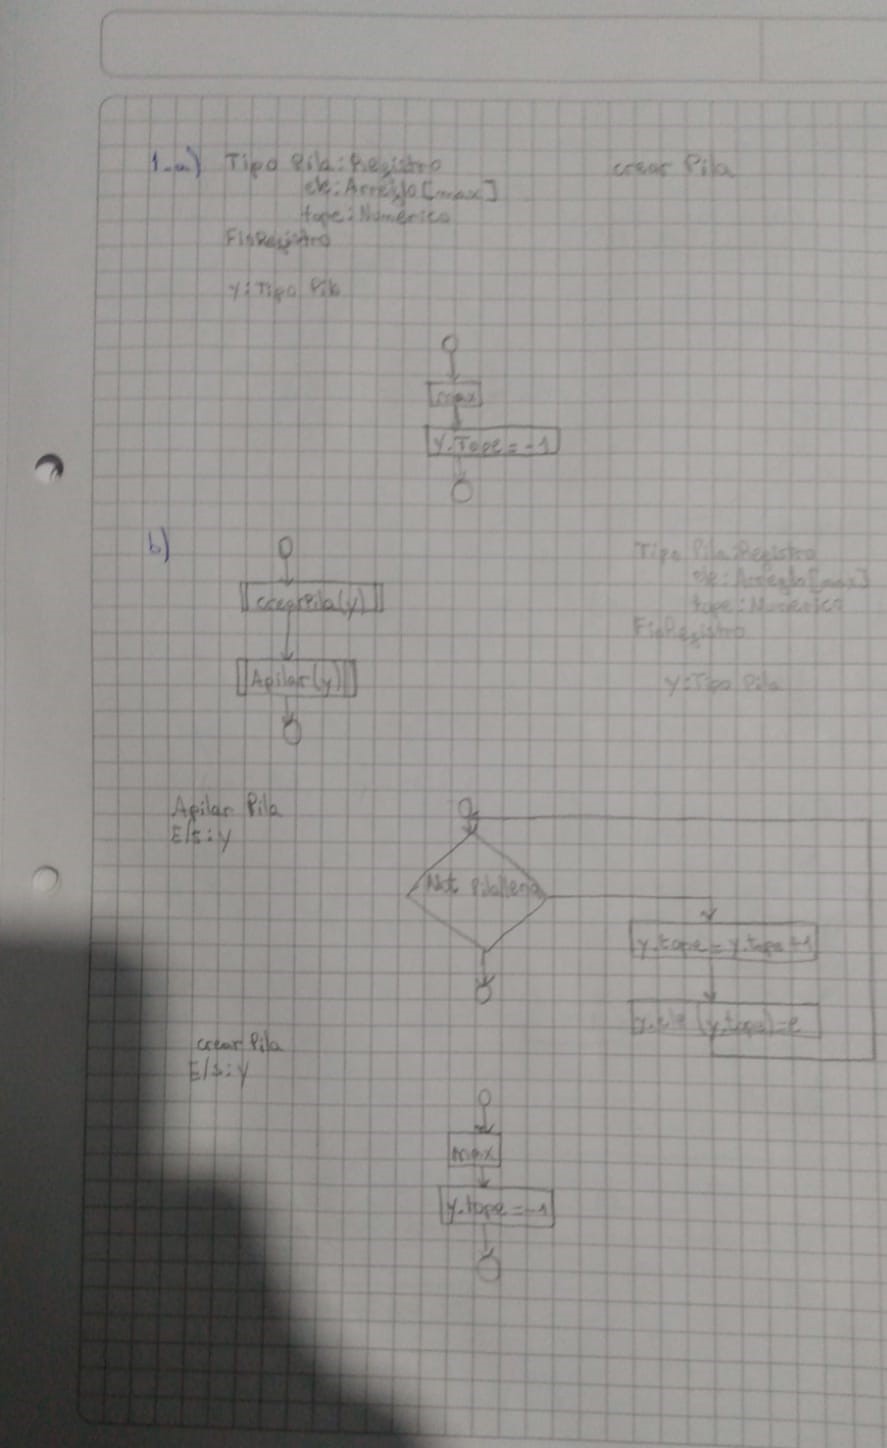 1-a) Tipo Pila: Registro
ele: Arreglo [max]
tope: Numerico
FinRegistro
crear Pila
y: Tipo Pila
max
y.Tope = -1
b)
crearPila(y)
Apilar(y)
Tipo Pila: Registro
ele: Arreglo [max]
tope: Numerico
FinRegistro
y: Tipo Pila
Apilar Pila
E/s: y
Not Pilallena
y.tope = y.tope +1
y.ele (y.tope) = e
crear Pila
E/s: y
max
y.tope = -1